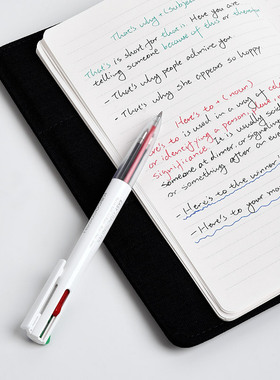 That's why + (subject
That's is short for that is. Here you are
telling someone because of this or therefor
- That's why people admire you
- That's why she appears so happy
Here's to + (noun)
Here's to is used in a way of
or identifying a person
significance. It is usually said
someone at dinner, or
or something after an eve
- Here's to the winner
- Here's to your mo